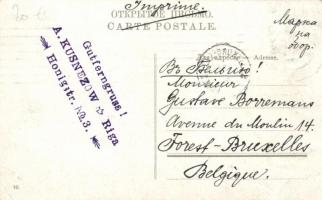 Imprimé.
ОТКРЫТОЕ ПИСЬМО.
CARTE POSTALE.
Марка
на
обор.
Gutferngruss!
A. KUSNEZOW Riga
Honigstr. № 3.
Adresse.
Въ Бельгію!
Monsieur
Gustave Borremans
Avenue du Moulin 14.
Forest-Bruxelles
Belgique.